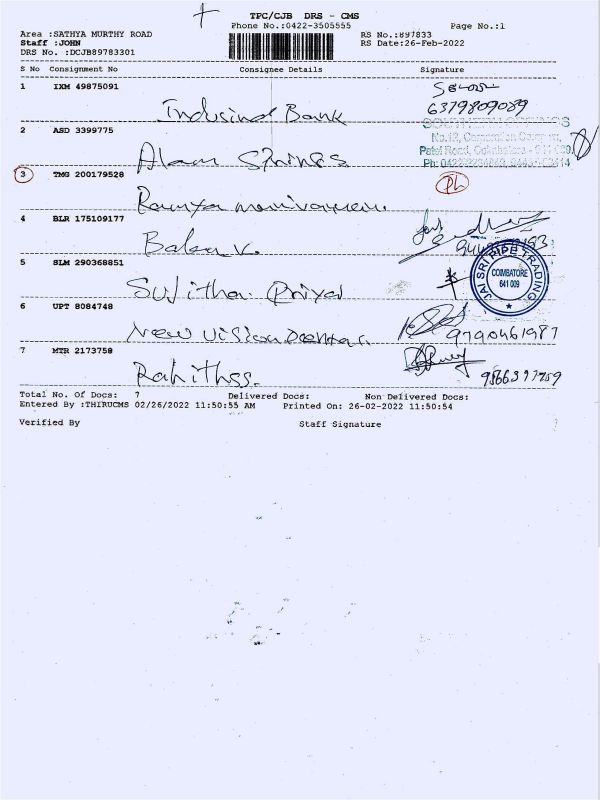 TPC/CJB DRS - CMS
Phone No.:0422-3505555 Page No.:1
Area :SATHYA MURTHY ROAD RS No.:897833
Staff :JOHN RS Date:26-Feb-2022
DRS No. :DCJB89783301
S No Consignment No Consignee Details Signature
1 IXM 49875091
6379809089
Indusind Bank
2 ASD 3399775
No.13, Corporation
Alam Springs
3 TMG 200179528 Ph
Ramya
4 BLR 175109177
Balan V.
5 SLM 290368851
JAI SRI PIPE TRADING
COIMBATORE
641 009
Sujitha Priya
6 UPT 8084748
9790461987
New Vision Dental
7 MTR 2173758
Rahithss.
Total No. Of Docs: 7 Delivered Docs: Non Delivered Docs:
Entered By :THIRUCMS 02/26/2022 11:50:55 AM Printed On: 26-02-2022 11:50:54
Verified By Staff Signature